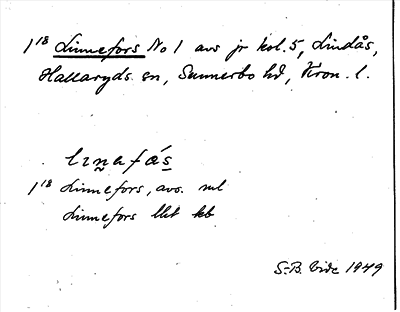 1/18 Linnefors No 1 avs jr kol. 5, Lindås,
Hallaryds sn, Sunnerbo hd, Kron. l.
lɩn̰afǻs̱
1/18 Linnefors, avs. ml
Linnefors llt kb
S-B. Vide 1949